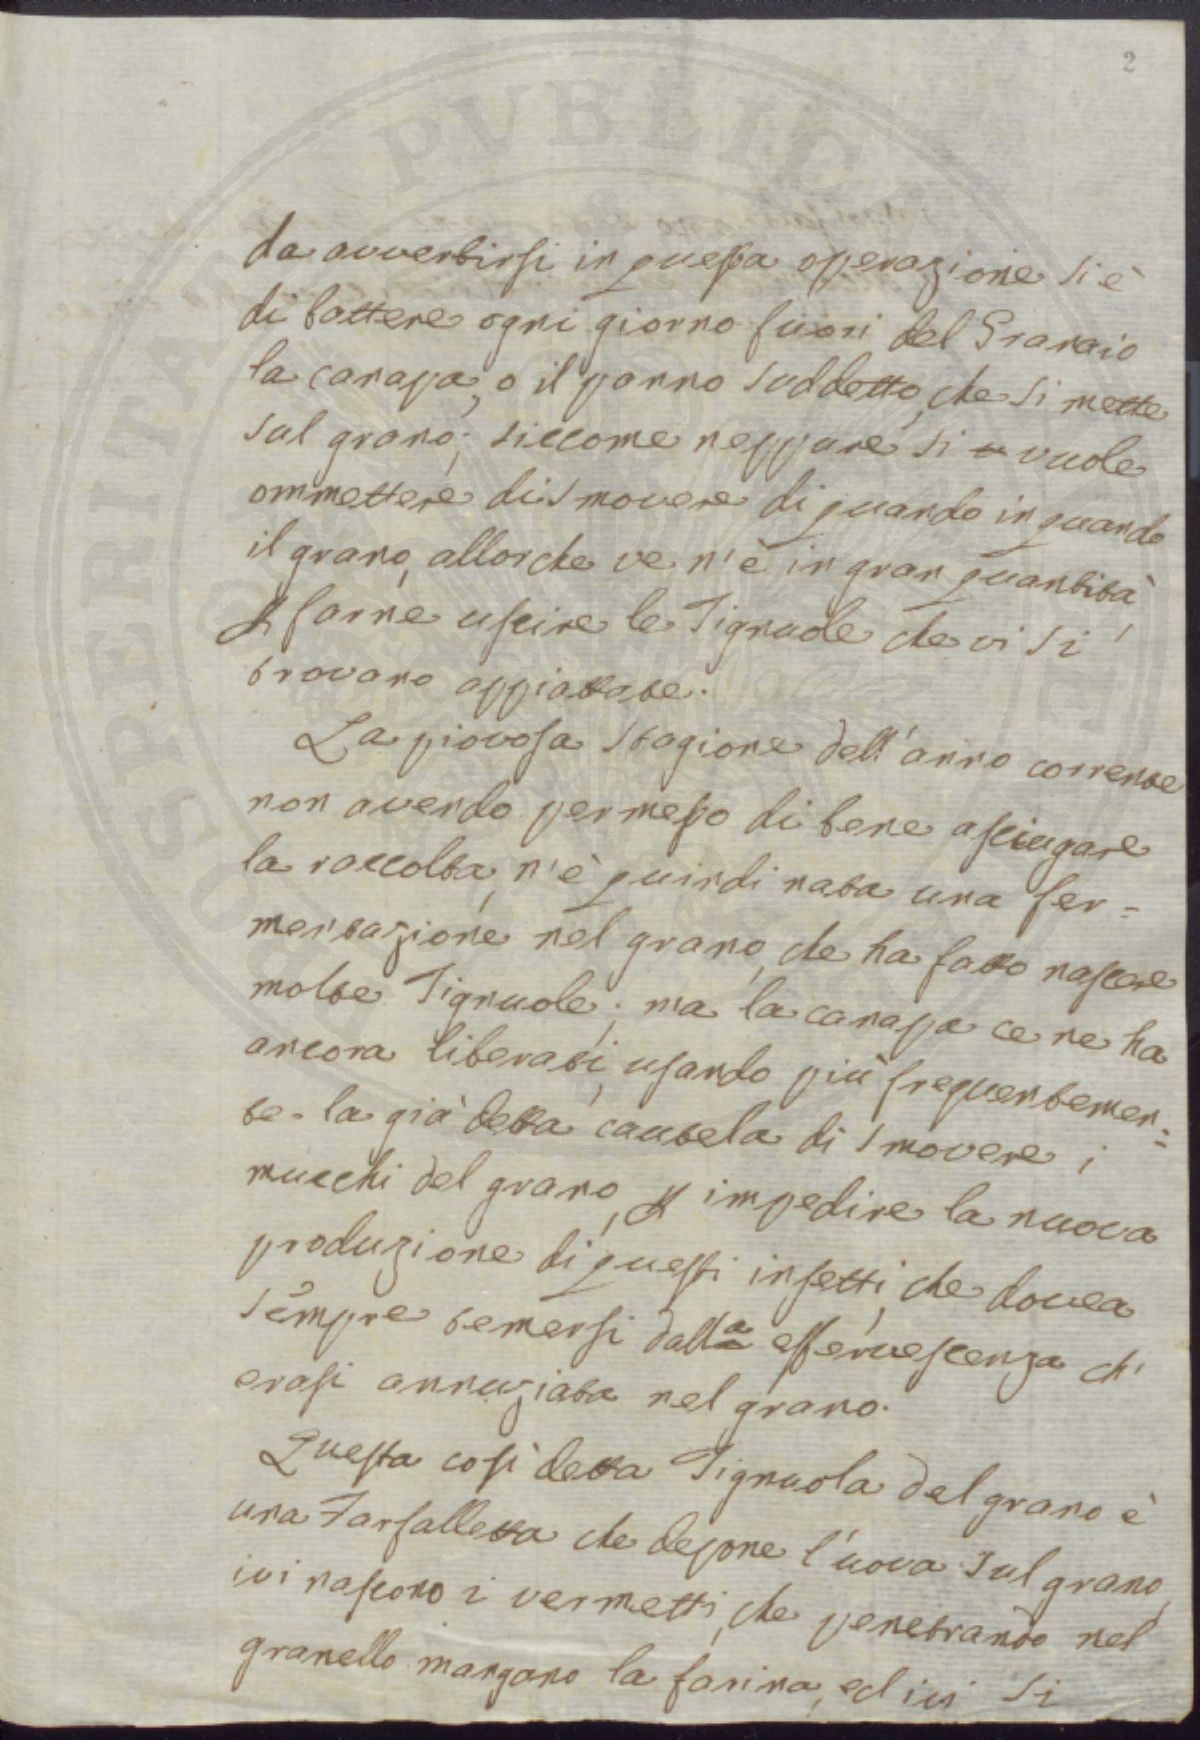 2
da avvertirsi in questa operazione si è
di battere ogni giorno fuori del Granaio
la canapa, o il panno suddetto, che si mette
sul grano; siccome neppure si vuole
ommettere di smovere di quando in quando
il grano, allorche ve n'è in gran quantità,
ꝑ farne uscire le Tignuole che vi si
trovano appiattate.
La piovosa stagione dell'anno corrente
non avendo permesso di bene asciugare
la raccolta, n'è quindi nata una fer=
mentazione nel grano, che ha fatto nascere
molte Tignuole; ma la canapa ce ne ha
ancora liberati, usando più frequentemen=
te la già detta cautela di smovere i
mucchi del grano, ꝑ impedire la nuova
produzione di questi insetti, che dovea
sempre temersi dalla effervescenza ch'
erasi annuziata nel grano.
Questa così detta Tignuola del grano è
una Farfalletta che depone l'uova sul grano,
ivi nascono i vermetti, che penetrando nel
granello mangano la farina, ed ivi si